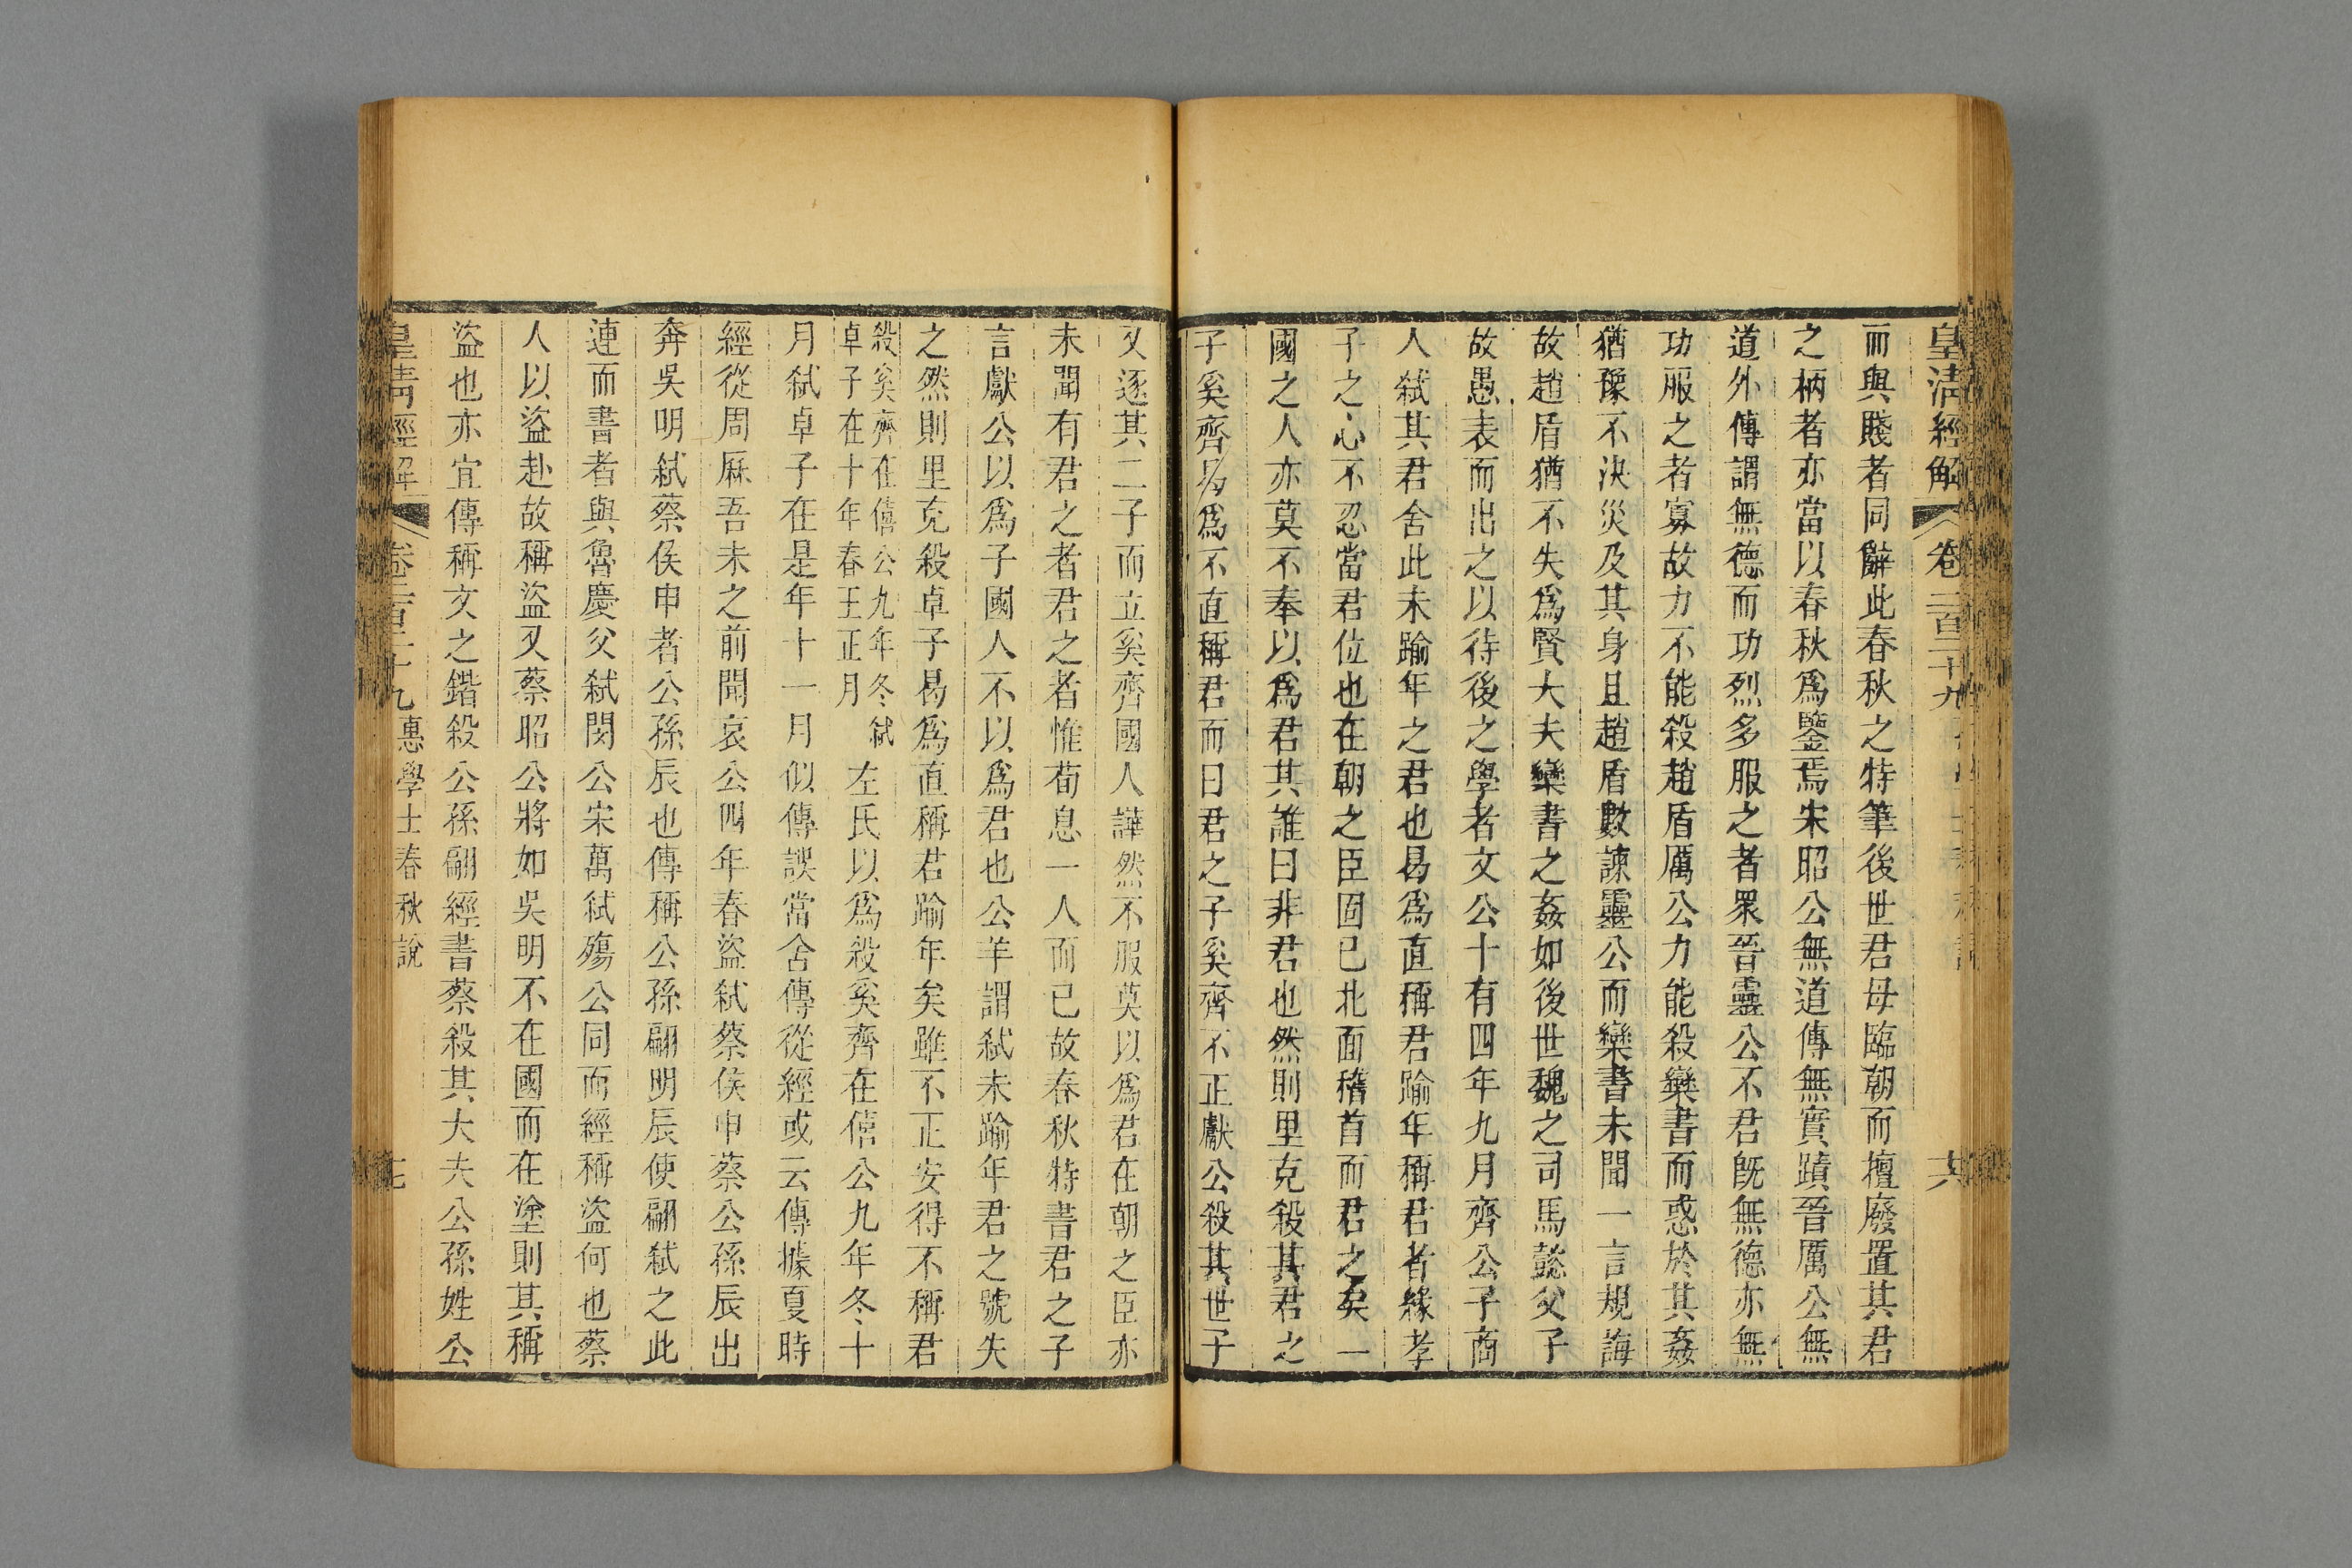 皇清經解 卷二百三十九 六
而與賤者同辭此春秋之特筆後世君母臨朝而擅廢置其君
之柄者亦當以春秋爲鑒焉宋昭公無道傳無實蹟晉厲公無
道外傳謂無德而功烈多服之者衆晉靈公不君旣無德亦無
功服之者寡故力不能殺趙盾厲公力能殺欒書而惑於其姦
猶豫不決災及其身且趙盾數諫靈公而欒書未聞一言規誨
故趙盾猶不失爲賢大夫欒書之姦如後世魏之司馬懿父子
故愚表而出之以待後之學者文公十有四年九月齊公子商
人弑其君舍此未踰年之君也曷爲直稱君踰年稱君者緣孝
子之心不忍當君位也在朝之臣固已北面稽首而君之矣一
國之人亦莫不奉以爲君其誰曰非君也然則里克殺其君之
子奚齊曷爲不直稱君而曰君之子奚齊不正獻公殺其世子
又逐其二子而立奚齊國人譁然不服莫以爲君在朝之臣亦
未聞有君之者君之者惟荀息一人而已故春秋特書君之子
言獻公以爲子國人不以爲君也公羊謂弑未踰年君之號失
之然則里克殺卓子曷爲直稱君踰年矣雖不正安得不稱君
殺奚齊在僖公九年冬弑
卓子在十年春王正月
左氏以爲殺奚齊在僖公九年冬十
月弑卓子在是年十一月似傳誤當舍傳從經或云傳據夏時
經從周厤吾未之前聞哀公四年春盜弑蔡侯申蔡公孫辰出
奔吳明弑蔡侯申者公孫辰也傳稱公孫翩明辰使翩弑之此
連而書者與魯慶父弑閔公宋萬弑殤公同而經稱盜何也蔡
人以盜赴故稱盜又蔡昭公將如吳明不在國而在塗則其稱
盜也亦宜傳稱文之鍇殺公孫翩經書蔡殺其大夫公孫姓公
皇淸經解 卷二百三十九惠學士春秋說